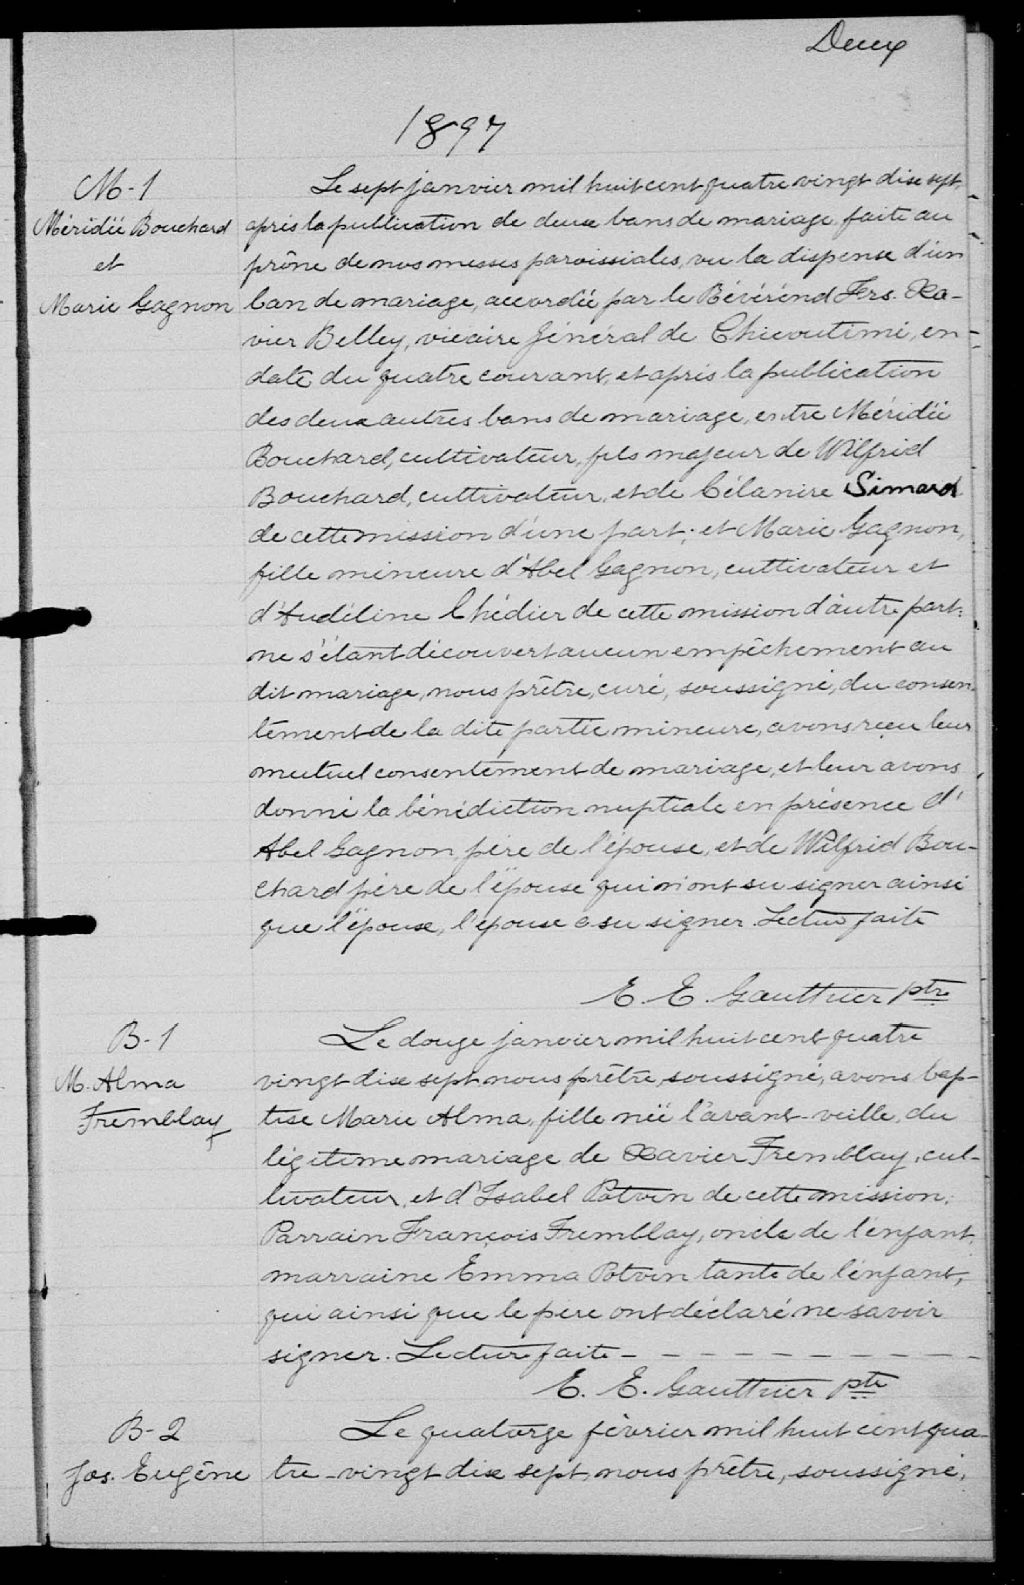 Deux
1897
M-1
Méridée Bouchard
et
Marie Gagnon
Le sept janvier mil huit cent quatre vingt dix sept,
après la publication de deux bans de mariage faite au
prône de nos messes paroissiales, vu la dispense d'un
ban de mariage, accordée par le Révérend Frs. Xa-
vier Belley, vicaire général de Chicoutimi, en
date du quatre courant, et après la publication
des deux autres bans de mariage, entre Méridée
Bouchard, cultivateur, fils majeur de Wilfrid
Bouchard, cultivateur, et de Célanire Simard
de cette mission d'une part; et Marie Gagnon,
fille mineure d'Abel Gagnon, cultivateur et
d'Audéline Chédier de cette mission d'autre part:
ne s'étant découvert aucun empêchement au
dit mariage, nous prêtre, curé, soussigné, du consen-
tement de la dite partie mineure, avons reçu leur
mutuel consentement de mariage, et leur avons
donné la bénédiction nuptiale en présence d'
Abel Gagnon père de l'épouse, et de Wilfrid Bou-
chard père de l'épouse qui n'ont su signer ainsi
que l'époux, l'épouse a su signer. Lecture faite
E. E. Gauthier ptre
B-1
M. Alma
Tremblay
Le douze janvier mil huit cent quatre
vingt dix sept nous prêtre, soussigné, avons bap-
tisé Marie Alma, fille née l'avant-veille, du
légitime mariage de Xavier Tremblay, cul-
tivateur, et d'Isabel Potvin de cette mission.
Parrain François Tremblay, oncle de l'enfant,
marraine Emma Potvin tante de l'enfant,
qui ainsi que le père ont déclaré ne savoir
signer. Lecture faite - - - - - - - - - -
E. E. Gauthier ptre
B-2
Jos. Eugène
Le quatorze février mil huit cent qua-
tre-vingt dix sept, nous prêtre, soussigné,